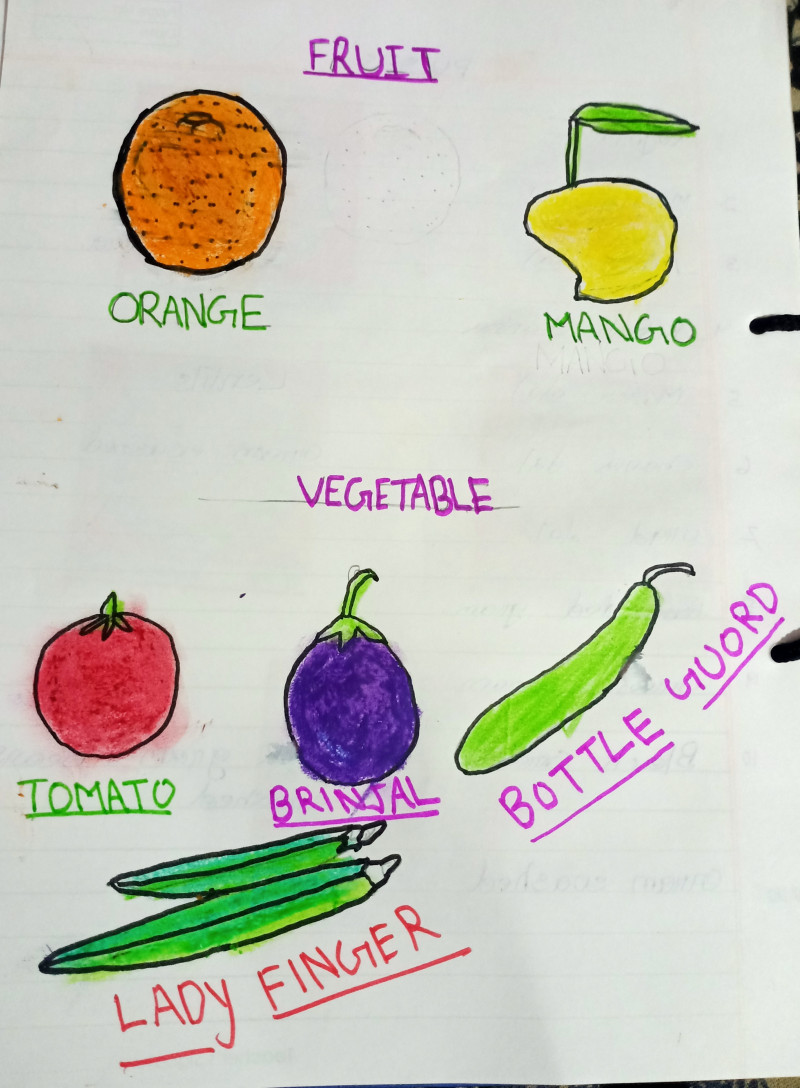 FRUIT
ORANGE
MANGO
MANGO
VEGETABLE
TOMATO
BRINJAL
BOTTLE GUORD
LADY FINGER